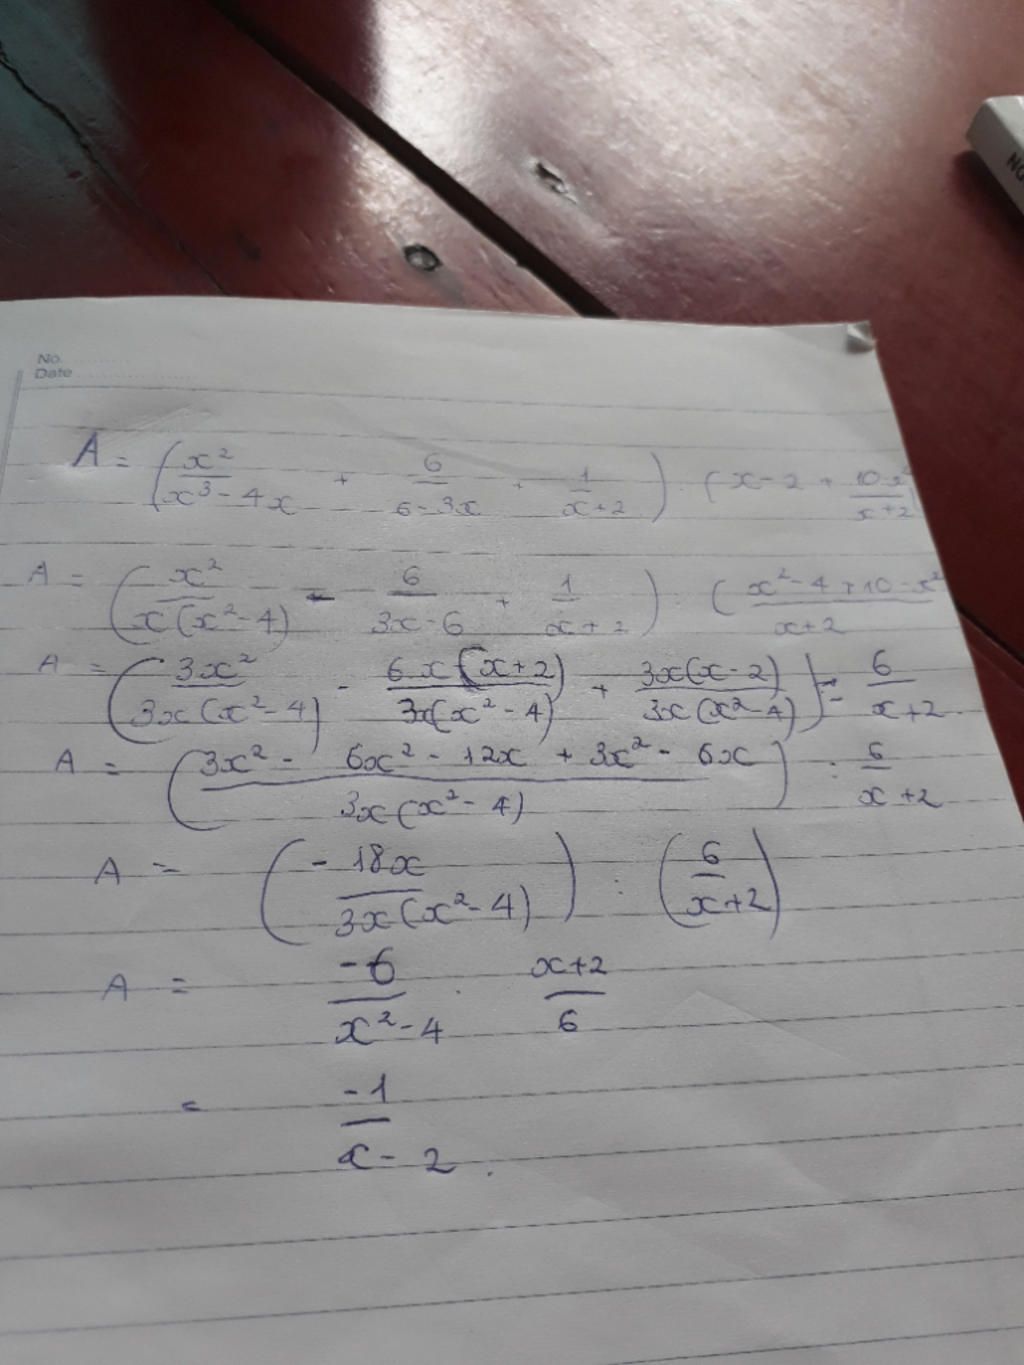 NG
No.
Date
A = (x²/(x³ - 4x) + 6/(6 - 3x) + 1/(x+2)) : (x - 2 + (10 - x²)/(x+2))
A = (x²/(x(x² - 4)) - 6/(3x - 6) + 1/(x+2)) : ((x² - 4 + 10 - x²)/(x+2))
A = (3x²/(3x(x² - 4)) - 6x(x+2)/(3x(x² - 4)) + 3x(x - 2)/(3x(x² - 4))) : 6/(x+2)
A = ((3x² - 6x² - 12x + 3x² - 6x)/(3x(x² - 4))) : 6/(x+2)
A = (-18x/(3x(x² - 4))) : (6/(x+2))
A = -6/(x² - 4) . (x+2)/6
= -1/(x - 2).